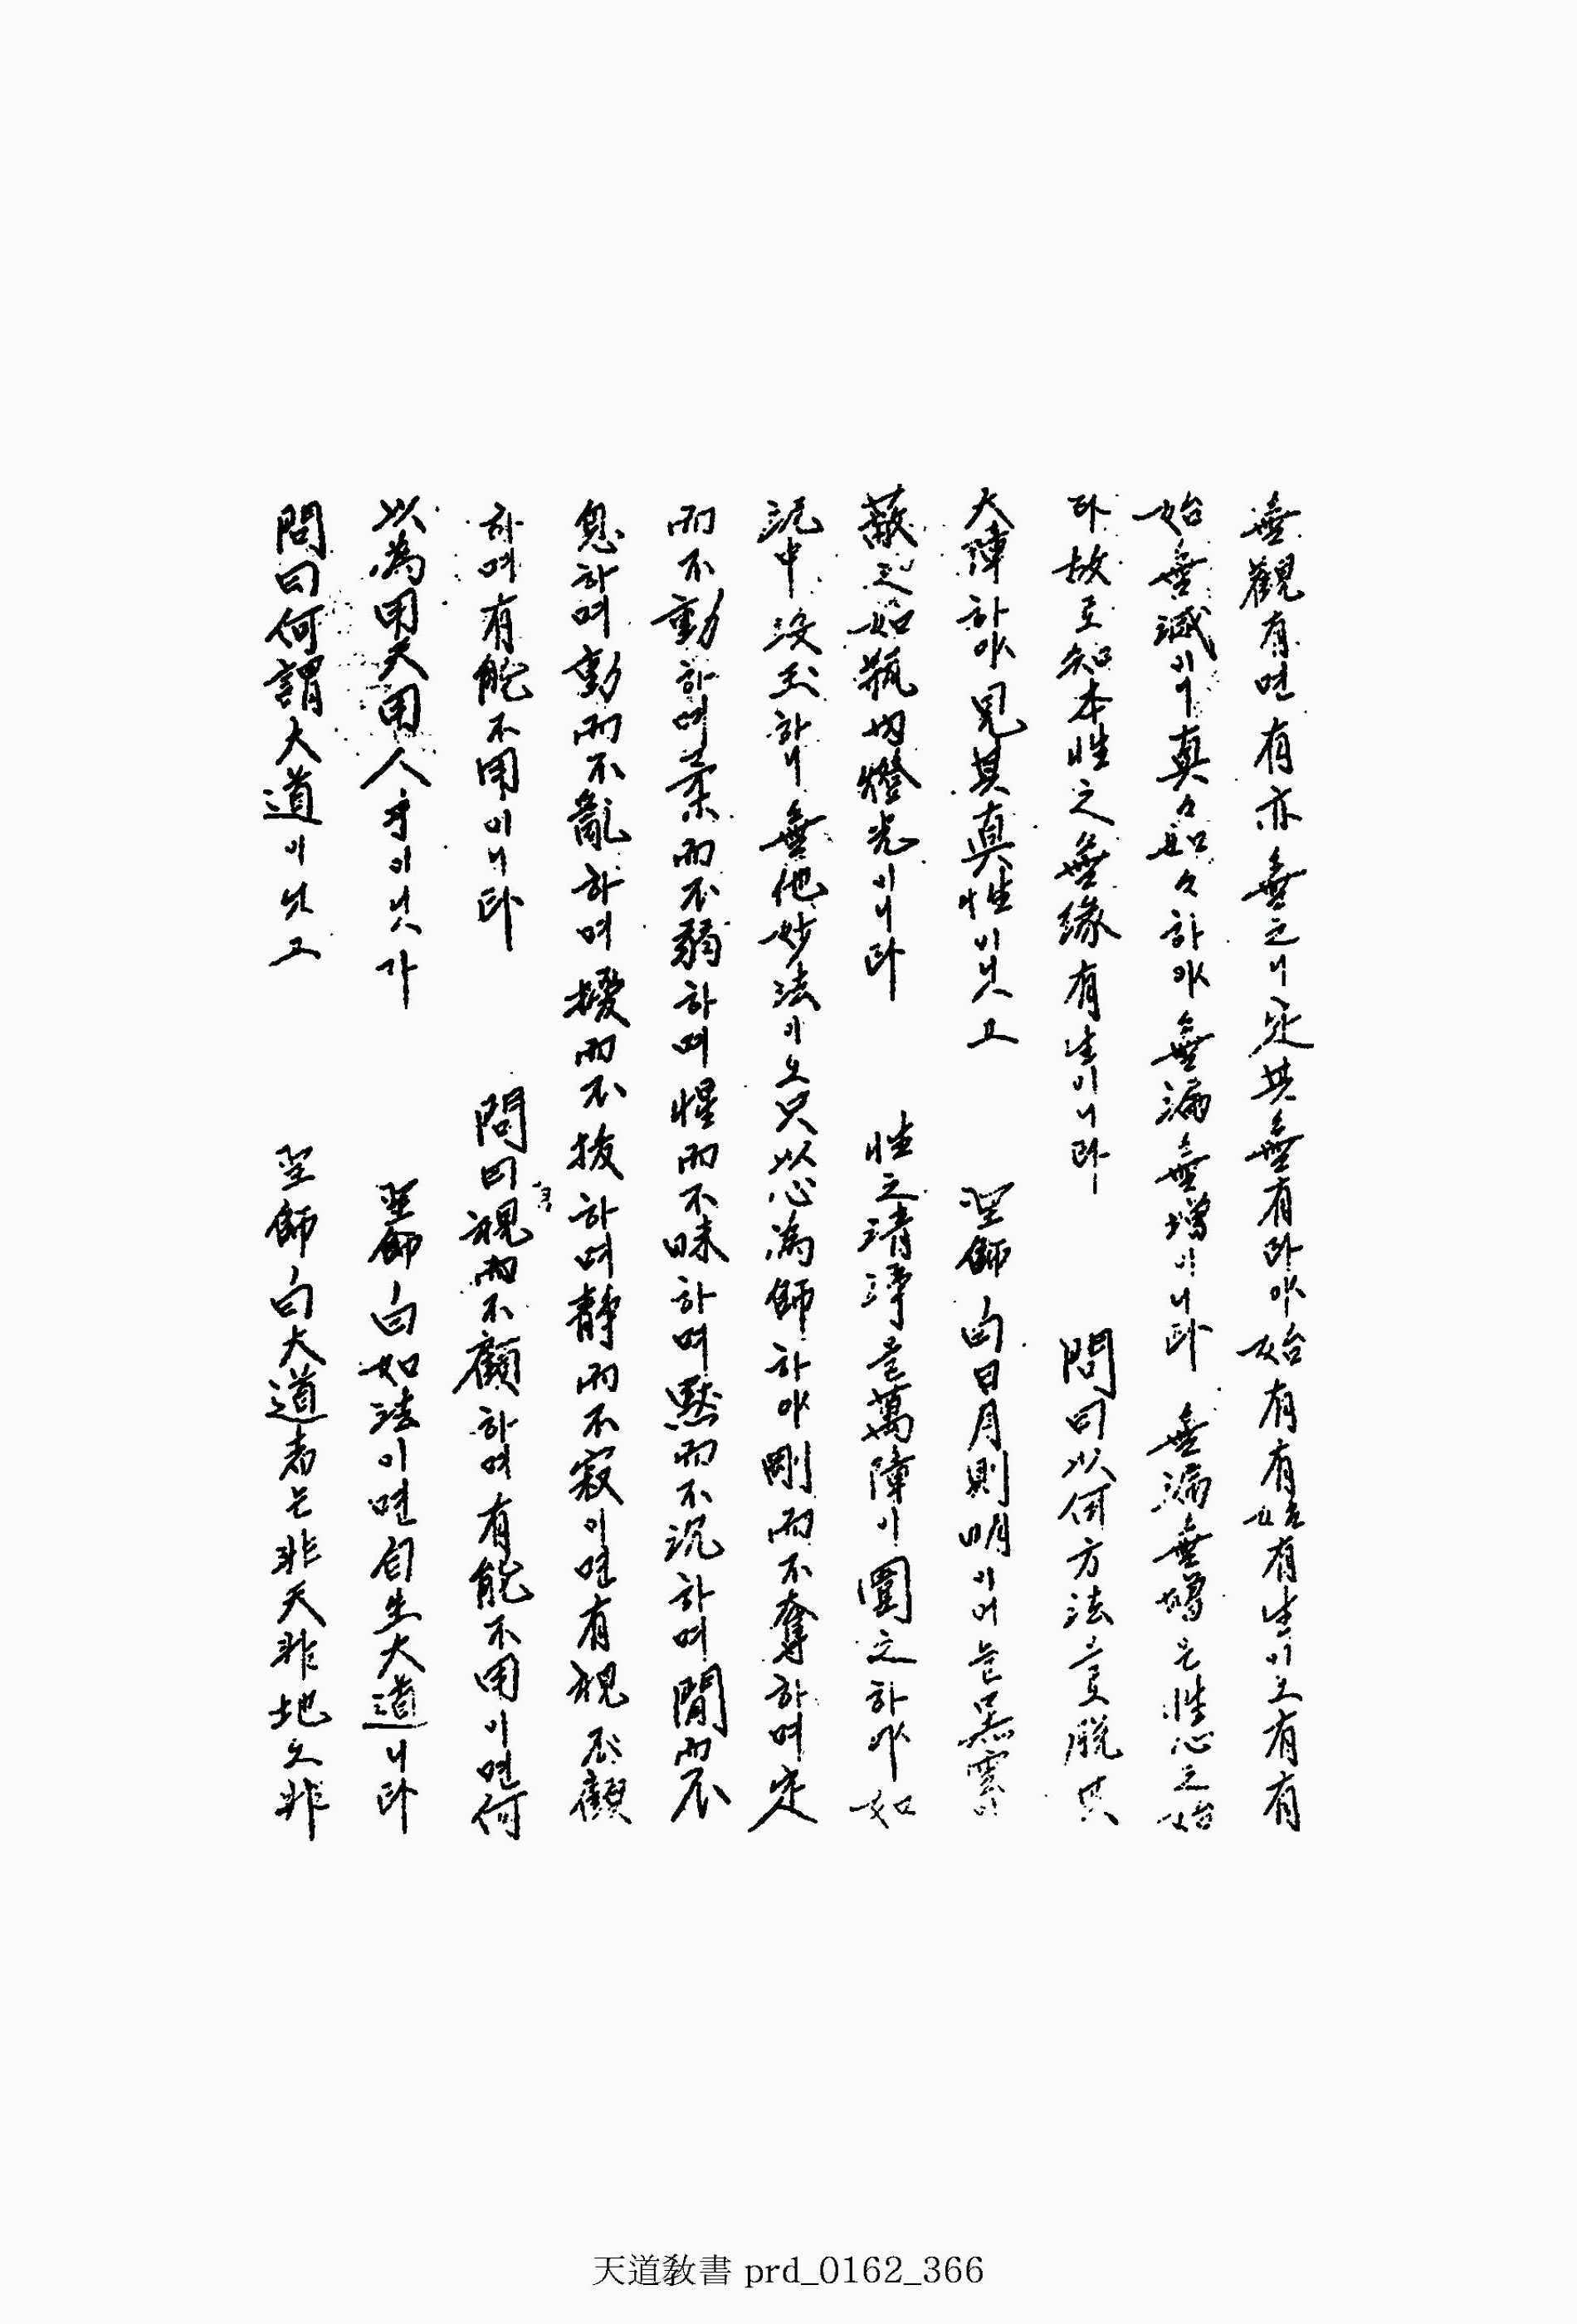 無觀有면有亦無之니定其無有라야始有有始有生이오有有
始無滅이니真々如々하야無漏無增이니라 無漏無增은性心之始
라故로知本性之無緣有生이니라 問曰以何方法으로脫其
大障하야見其真性이닛고 聖師曰日月則明이어늘黑雲이
蔽之如瓶內燈光이니라 性之清淨을萬障이圍之하야如
泥中沒玉하니無他妙法이오只以心為師하야剛而不奪하며定
而不動하며柔而不弱하며惺而不昧하며黙而不沉하며閒而不
息하며動而不亂하며擾而不拔하며静而不寂이면有視不顧
하며有能不用이니라 問曰視而不顧하며有能不用이면何
以為用天用人乎이닛가 聖師曰如法이면自生大道니라
問曰何謂大道이닛고 聖師曰大道者는非天非地오非
天道敎書 prd_0162_366